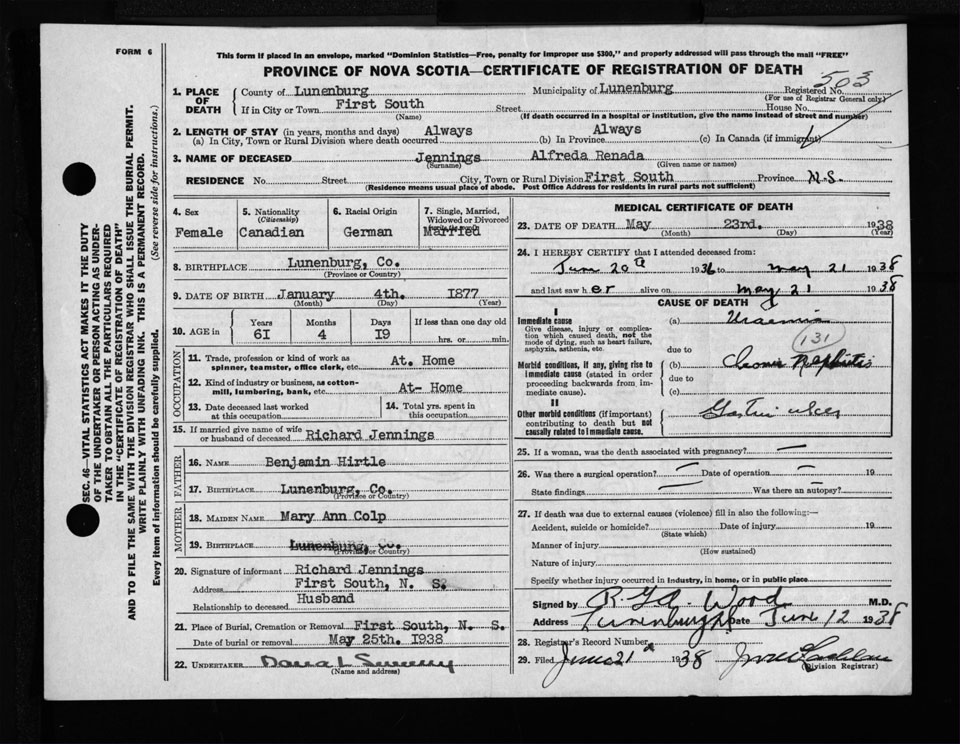 FORM 6
This form if placed in an envelope, marked "Dominion Statistics—Free, penalty for improper use $300," and properly addressed will pass through the mail "FREE"
PROVINCE OF NOVA SCOTIA—CERTIFICATE OF REGISTRATION OF DEATH
503
1. PLACE OF DEATH
County of Lunenburg Municipality of Lunenburg Registered No.
(For use of Registrar General only)
If in City or Town First South Street House No.
(Name) (If death occurred in a hospital or institution, give the name instead of street and number)
2. LENGTH OF STAY (in years, months and days) Always Always
(a) In City, Town or Rural Division where death occurred (b) In Province (c) In Canada (if immigrant)
3. NAME OF DECEASED Jennings Alfreda Renada
(Surname) (Given name or names)
RESIDENCE No. Street City, Town or Rural Division First South Province N.S.
(Residence means usual place of abode. Post Office Address for residents in rural parts not sufficient)
4. Sex
Female
5. Nationality
(Citizenship)
Canadian
6. Racial Origin
German
7. Single, Married,
Widowed or Divorced
Married
8. BIRTHPLACE Lunenburg, Co.
(Province or Country)
9. DATE OF BIRTH January 4th. 1877
(Month) (Day) (Year)
10. AGE in
Years Months Days If less than one day old
61 4 19 hrs. or min.
OCCUPATION
11. Trade, profession or kind of work as
spinner, teamster, office clerk, etc At. Home
12. Kind of industry or business, as cotton-
mill, lumbering, bank, etc. At- Home
13. Date deceased last worked
at this occupation
14. Total yrs. spent in
this occupation
15. If married give name of wife
or husband of deceased Richard Jennings
FATHER
16. NAME Benjamin Hirtle
17. BIRTHPLACE Lunenburg, Co.
(Province or Country)
MOTHER
18. MAIDEN NAME Mary Ann Colp
19. BIRTHPLACE Lunenburg, Co.
(Province or Country)
20. Signature of informant Richard Jennings
Address First South, N. S.
Relationship to deceased Husband
21. Place of Burial, Cremation or Removal First South, N. S.
Date of burial or removal May 25th. 1938
22. UNDERTAKER
(Name and address)
MEDICAL CERTIFICATE OF DEATH
23. DATE OF DEATH May 23rd. 1938
(Month) (Day) (Year)
24. I HEREBY CERTIFY that I attended deceased from:
June 20th 1936 to May 21 1938
and last saw her alive on May 21 1938
CAUSE OF DEATH
I
Immediate cause
Give disease, injury or complica-
tion which caused death, not the
mode of dying, such as heart failure,
asphyxia, asthenia, etc.
(a) Uraemia
131
due to
Morbid conditions, if any, giving rise to
immediate cause (stated in order
proceeding backwards from im-
mediate cause).
(b) Chronic Nephritis
due to
(c)
II
Other morbid conditions (if important)
contributing to death but not
causally related to immediate cause.
Gastric ulcer
25. If a woman, was the death associated with pregnancy?
26. Was there a surgical operation? Date of operation 19
State findings Was there an autopsy?
27. If death was due to external causes (violence) fill in also the following:—
Accident, suicide or homicide? Date of injury 19
(State which)
Manner of injury
(How sustained)
Nature of injury
Specify whether injury occurred in industry, in home, or in public place
Signed by Wood M.D.
Address Lunenburg Date June 12 1938
28. Registrar's Record Number
29. Filed June 21 1938
(Division Registrar)
SEC. 46—VITAL STATISTICS ACT MAKES IT THE DUTY
OF THE UNDERTAKER OR PERSON ACTING AS UNDER-
TAKER TO OBTAIN ALL THE PARTICULARS REQUIRED
IN THE "CERTIFICATE OF REGISTRATION OF DEATH"
AND TO FILE THE SAME WITH THE DIVISION REGISTRAR WHO SHALL ISSUE THE BURIAL PERMIT.
WRITE PLAINLY WITH UNFADING INK. THIS IS A PERMANENT RECORD.
Every item of information should be carefully supplied. (See reverse side for instructions.)